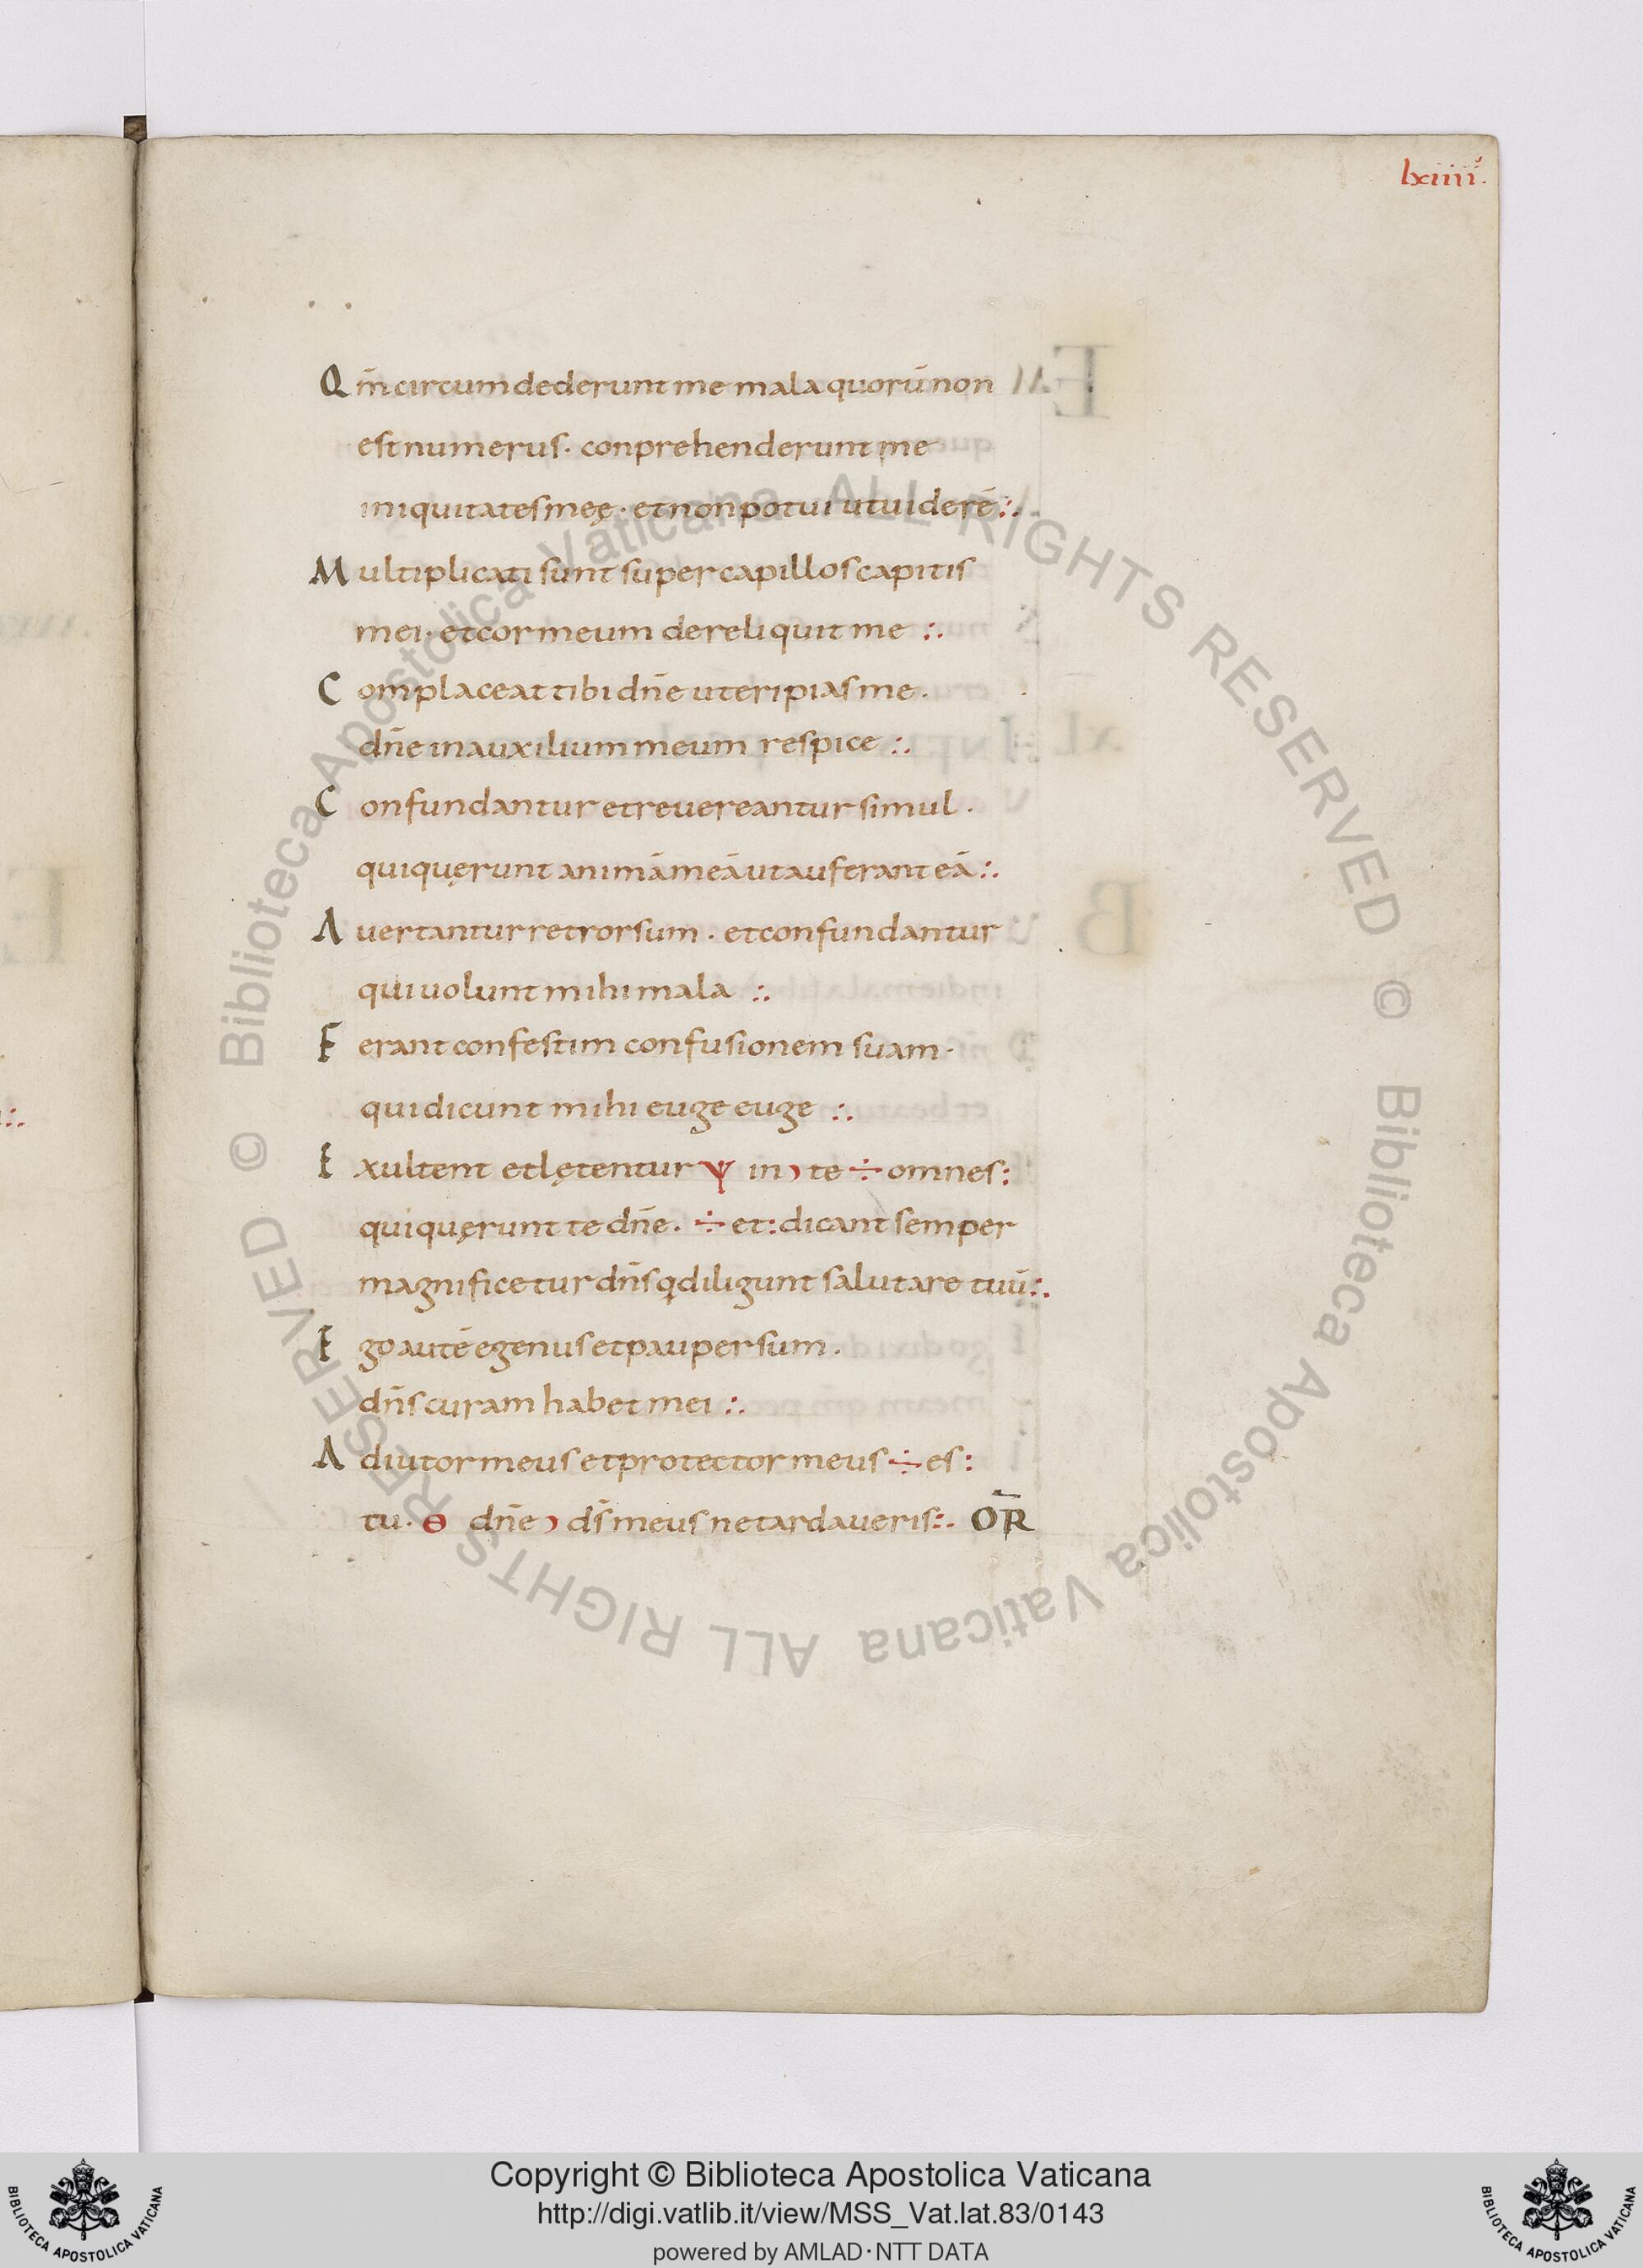 lxiiii.
Qm̄ circumdederunt me mala quorū non
est numerus· conprehenderunt me
iniquitates meę· et non potui ut uiderē:.
Multiplicati sunt super capillos capitis
mei· et cor meum dereliquit me :.
Complaceat tibi dn̄e ut eripias me·
dn̄e in auxilium meum respice :.
Confundantur et reuereantur simul·
qui quęrunt animā meā ut auferant eā:.
Auertantur retrorsum· et confundantur
qui uolunt mihi mala :.
Ferant confestim confusionem suam·
qui dicunt mihi euge euge :.
Exultent et lętentur ψ in ɔ te ÷ omnes:
qui quęrunt te dn̄e· ÷ et: dicant semper
magnificetur dn̄s q̣ diligunt salutare tuū:.
Ego autē egenus et pauper sum·
dn̄s curam habet mei :.
Adiutor meus et protector meus ÷ es:
tu· Θ dn̄e ɔ ds̄ meus ne tardaueris:. OR̄
Copyright © Biblioteca Apostolica Vaticana
http://digi.vatlib.it/view/MSS_Vat.lat.83/0143
powered by AMLAD·NTT DATA
BIBLIOTECA APOSTOLICA VATICANA
BIBLIOTECA APOSTOLICA VATICANA
© Biblioteca Apostolica Vaticana ALL RIGHTS RESERVED
© Biblioteca Apostolica Vaticana ALL RIGHTS RESERVED